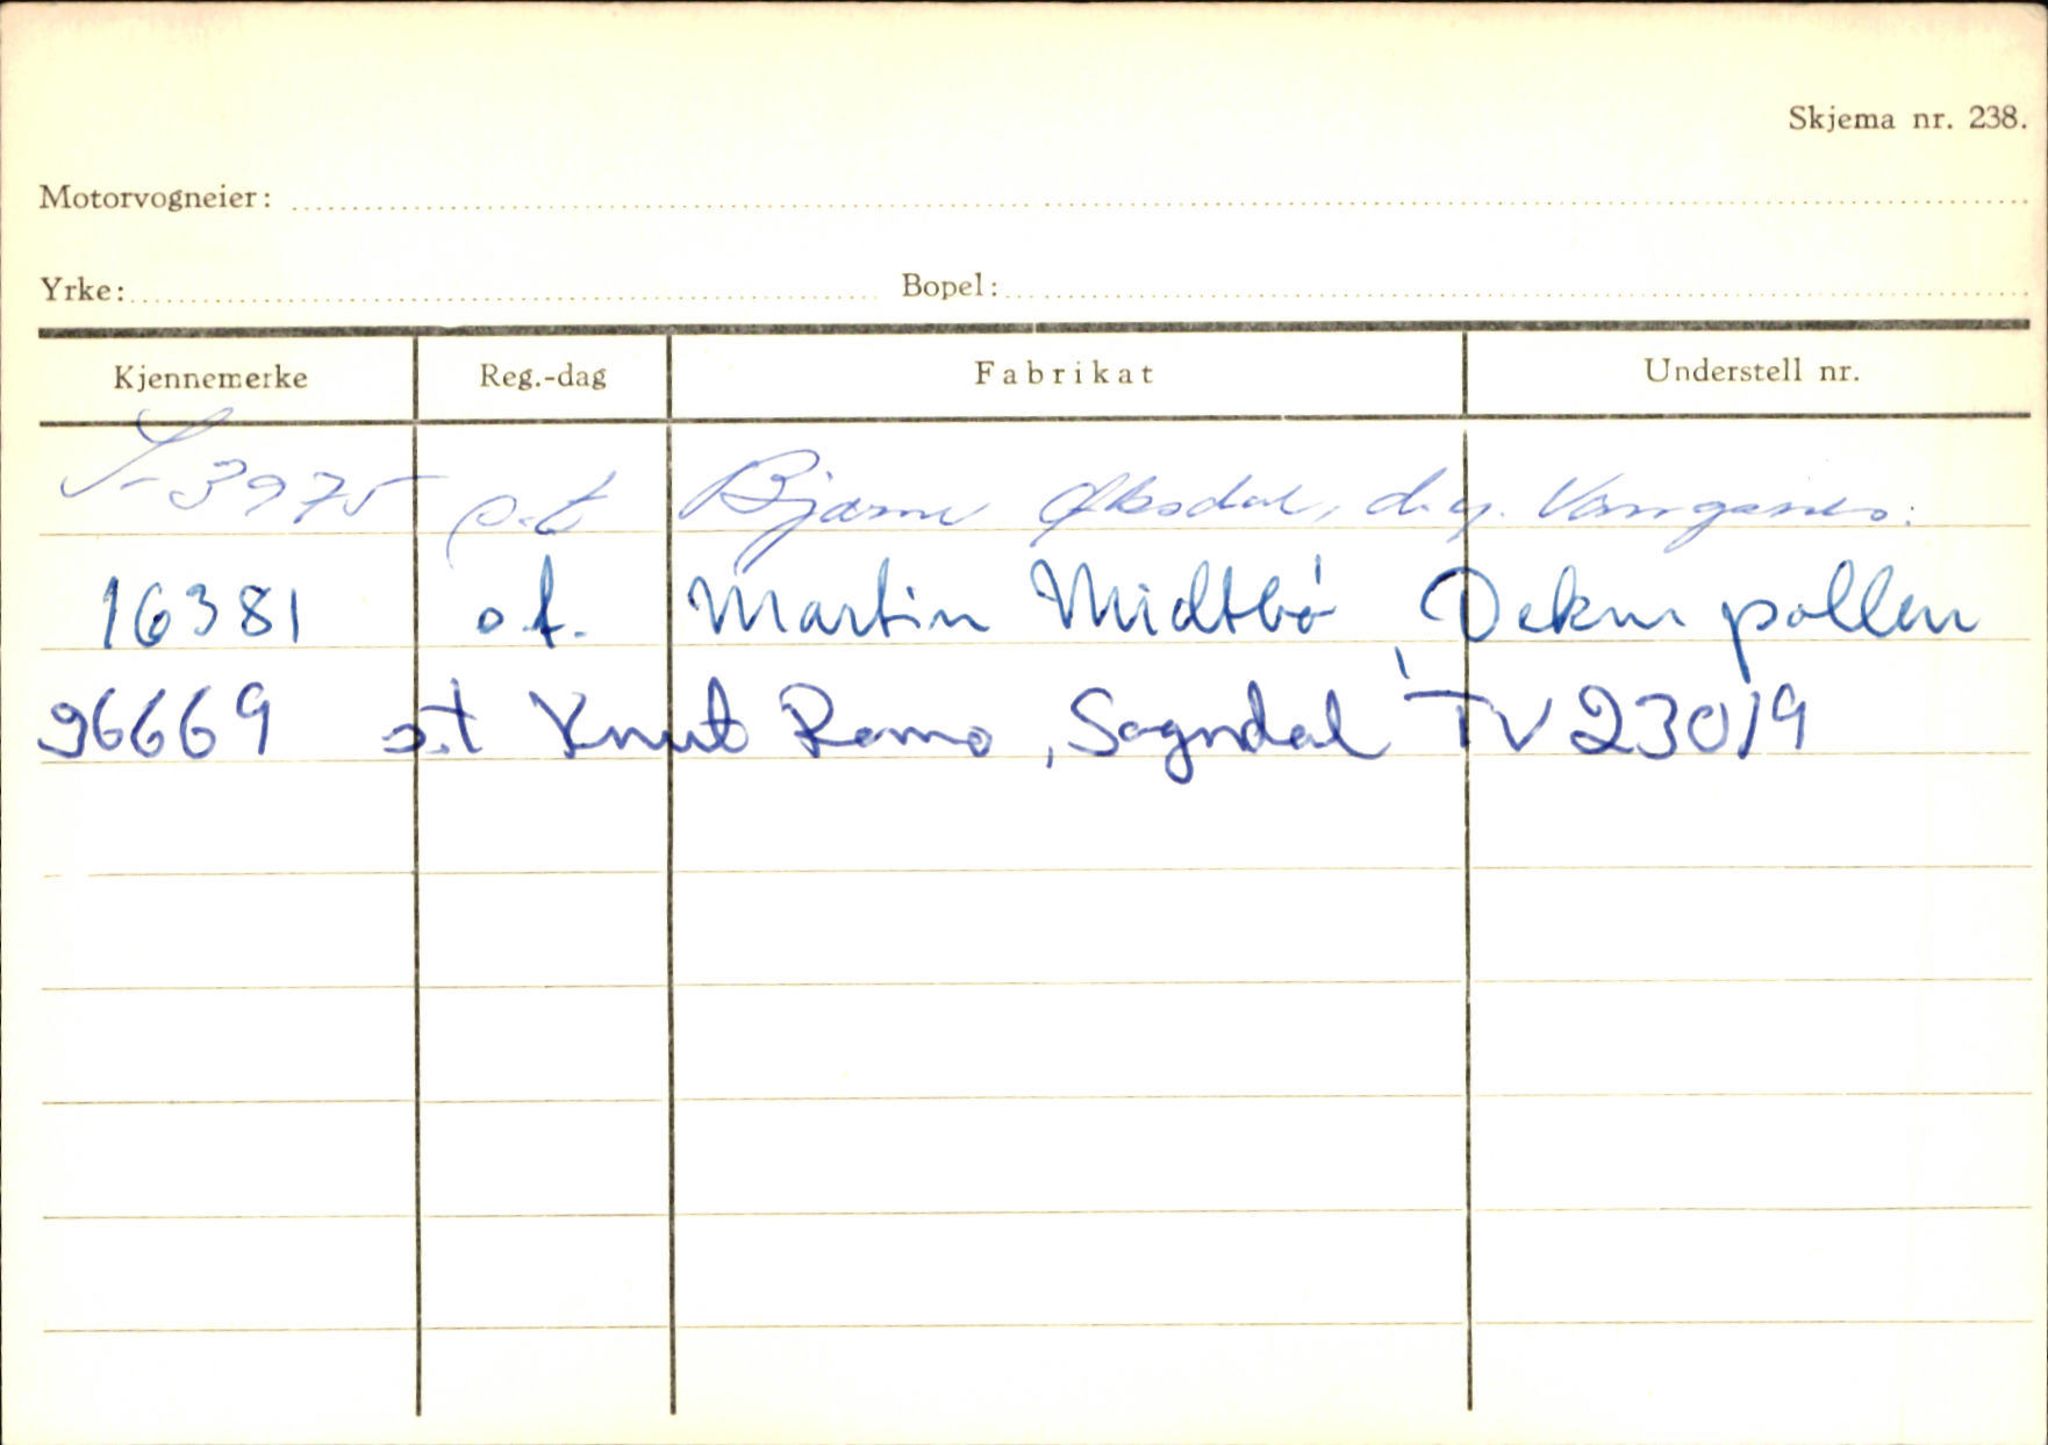 Skjema nr. 238.
Motorvogneier:
Yrke: Bopel:
Kjennemerke Reg.-dag Fabrikat Understell nr.
S-3975 o.t Bjarne Øksdal, d.y. Vangsnes.
16381 o.t. Martin Midtbø, Deknepollen
96669 o.t Knut Ramo, Sogndal TV 23019